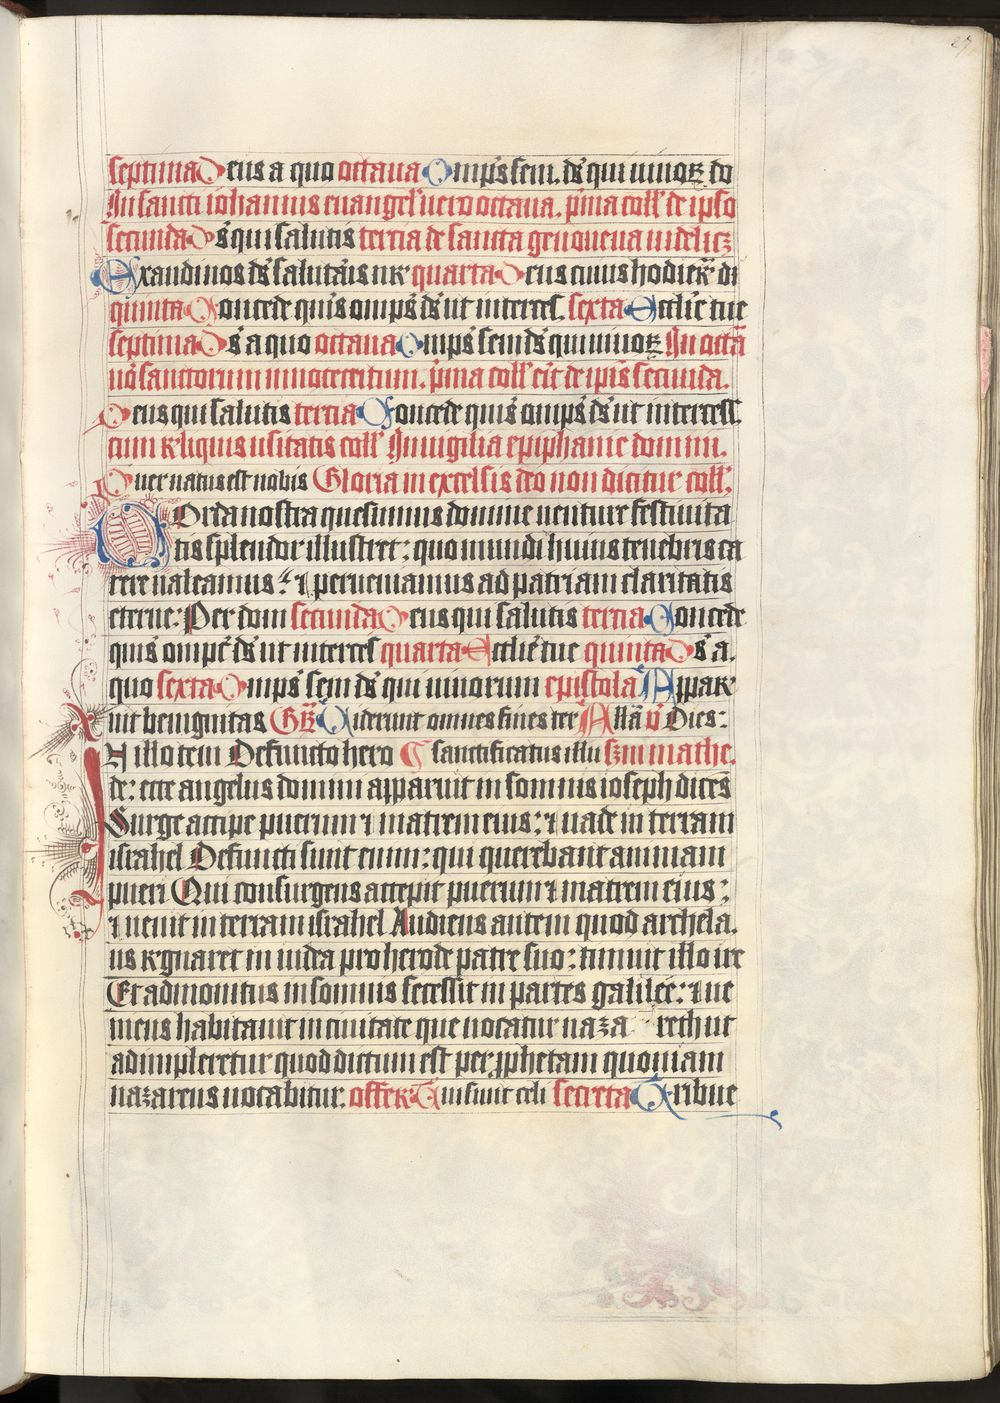 27
septima Deus a quo octaua Omp̄s sem. ds̄ qui uiuoꝝ do
In sancti iohannis euangel' uero octaua. p̄ma coll' de ipso
secunda Ds̄ qui salutis tercia de sancta genoueua uidelicꝫ
Exaudi nos ds̄ salutāis nr̄ quarta Deus cuius hodiern̄ di
quinta Concede quis̄ omps̄ ds̄ ut interces. sexta Ecclīe tue
septima Ds̄ a quo octaua Omps̄ sem ds̄ qui uiuoꝝ In octā
uō sanctorum innocentum. p̄ma coll' erīt de ipis̄ secunda.
Deus qui salutis tercia Concede quis̄ omps̄ ds̄ ut intercess.
cum reliquis usitatis coll' In uigilia epiphanie domini.
Puer natus est nobis Gloria in excelsis deo non dicitur coll'.
Corda nostra quesumus domine uenture festiuita
tis splendor illustret: quo mundi huius tenebris ca
rere ualeamus: ⁊ perueniamus ad patriam claritatis
eterne: Per dom secunda Deus qui salutis tercia Concede
quis̄ omps̄ ds̄ ut interces quarta Ecclīe tue quinta Ds̄ a.
quo sexta Omps̄ sem ds̄ qui uiuorum epistola Apparu
it benignitas Gr̄ Uiderunt omnes fines ter Allā v̄ Dies:
In illo tem Defuncto hero ¶ sanctificatus illu scd̄m mathe.
de: ecce angelus domini apparuit in somnis ioseph dicēs
Surge accipe puerum ⁊ matrem eius: ⁊ uade in terram
israhel Defuncti sunt enim: qui querebant animam
pueri Qui consurgens accepit puerum ⁊ matrem eius:
⁊ uenit in terram israhel Audiens autem quod archela.
us regnaret in iudea pro herode patre suo: timuit illo ire
Et admonitus in somnis secessit in partes galilee: ⁊ ue
niens habitauit in ciuitate que uocatur naza reth ut
adimpleretur quod dictum est per ꝓphetam quoniam
nazareus uocabitur. offer Tui sunt celi secreta Tribue